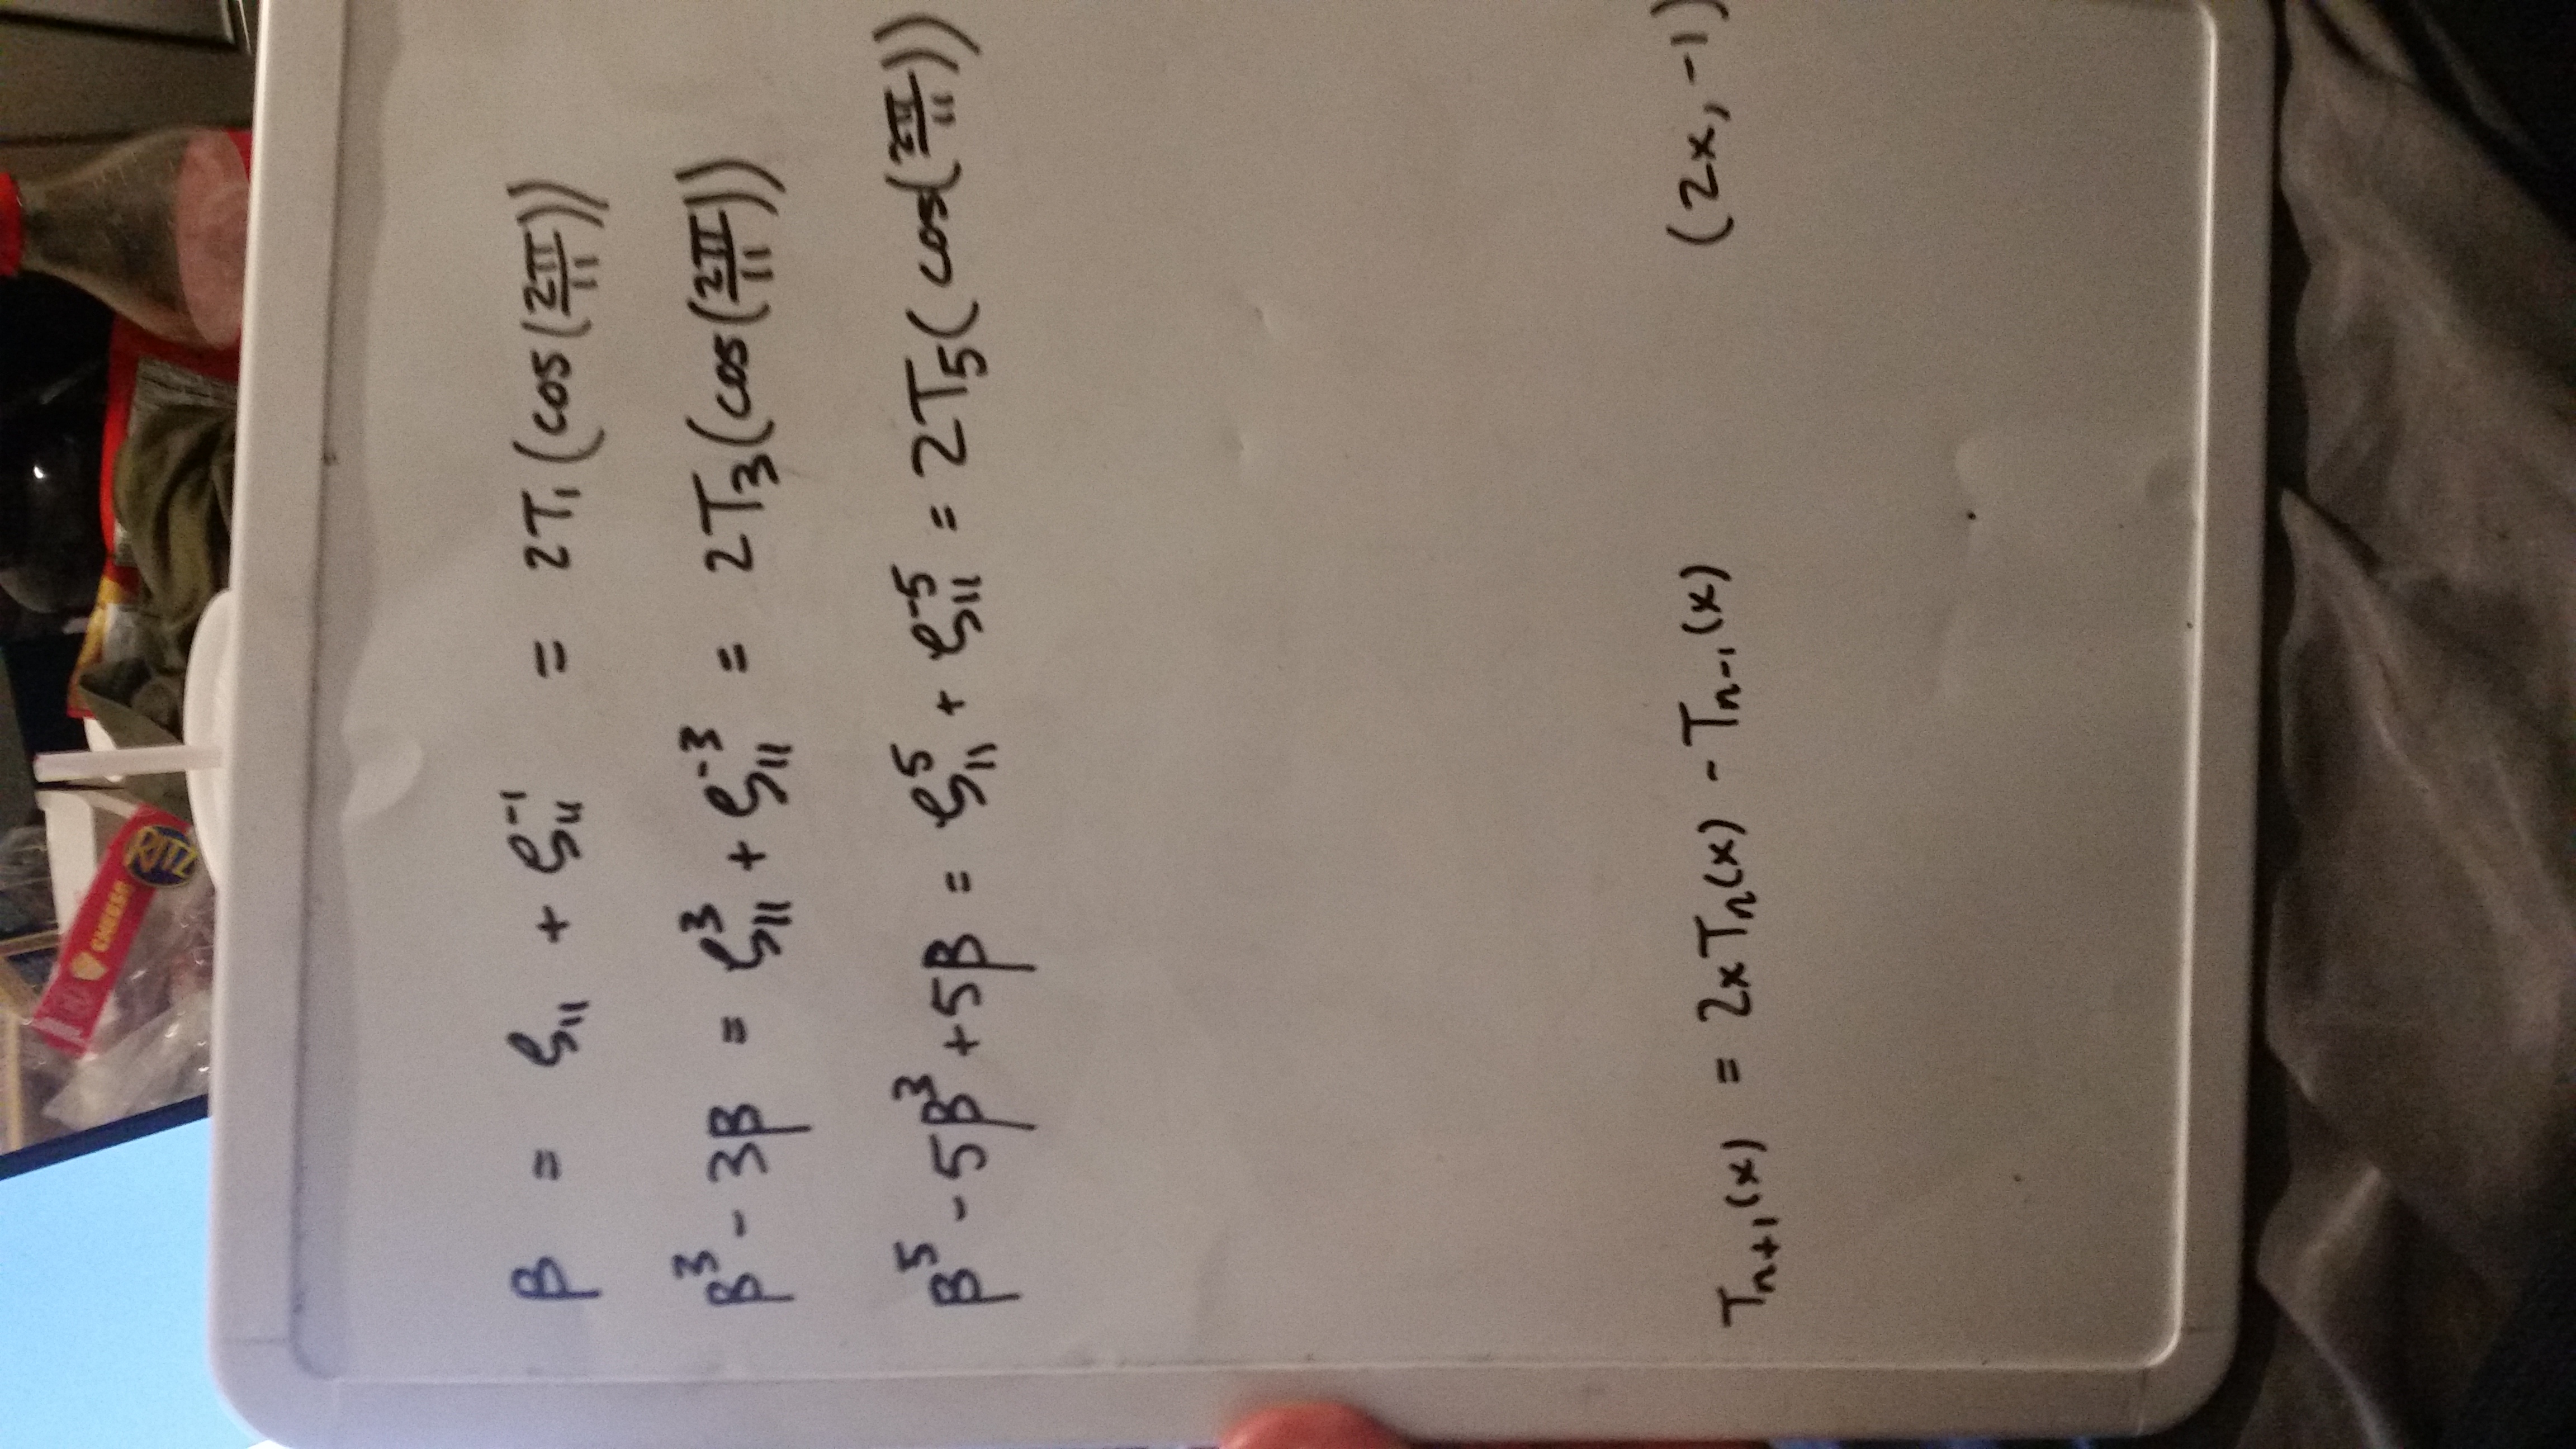 CHEESE
RITZ
β = ζ₁₁ + ζ₁₁⁻¹ = 2T₁(cos(2π/11))
β³ - 3β = ζ₁₁³ + ζ₁₁⁻³ = 2T₃(cos(2π/11))
β⁵ - 5β³ + 5β = ζ₁₁⁵ + ζ₁₁⁻⁵ = 2T₅(cos(2π/11))
Tₙ₊₁(x) = 2xTₙ(x) - Tₙ₋₁(x) (2x, -1)